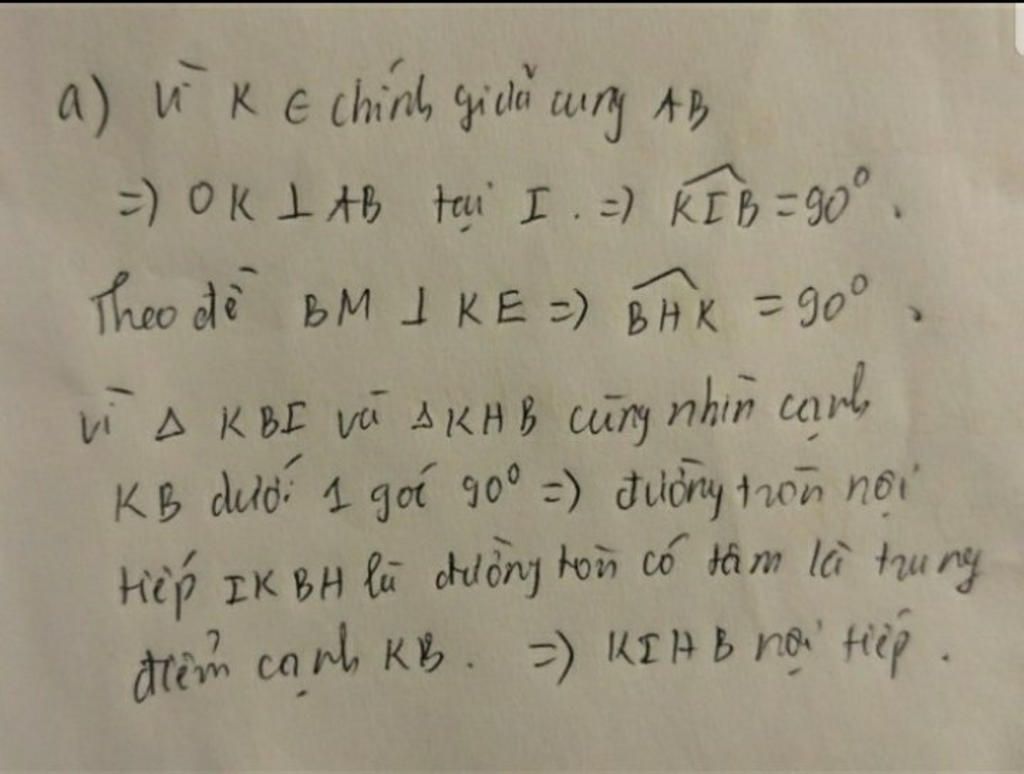 a) Vì K ∈ chính giữa cung AB
=) OK ⊥ AB tại I . =) \widehat{KIB} = 90⁰ .
Theo đề BM ⊥ KE =) \widehat{BHK} = 90⁰ ,
Vì Δ KBI và Δ KHB cùng nhìn cạnh
KB dưới 1 góc 90⁰ =) đường tròn nội
tiếp IKBH là đường tròn có tâm là trung
điểm cạnh KB . =) KIHB nội tiếp .